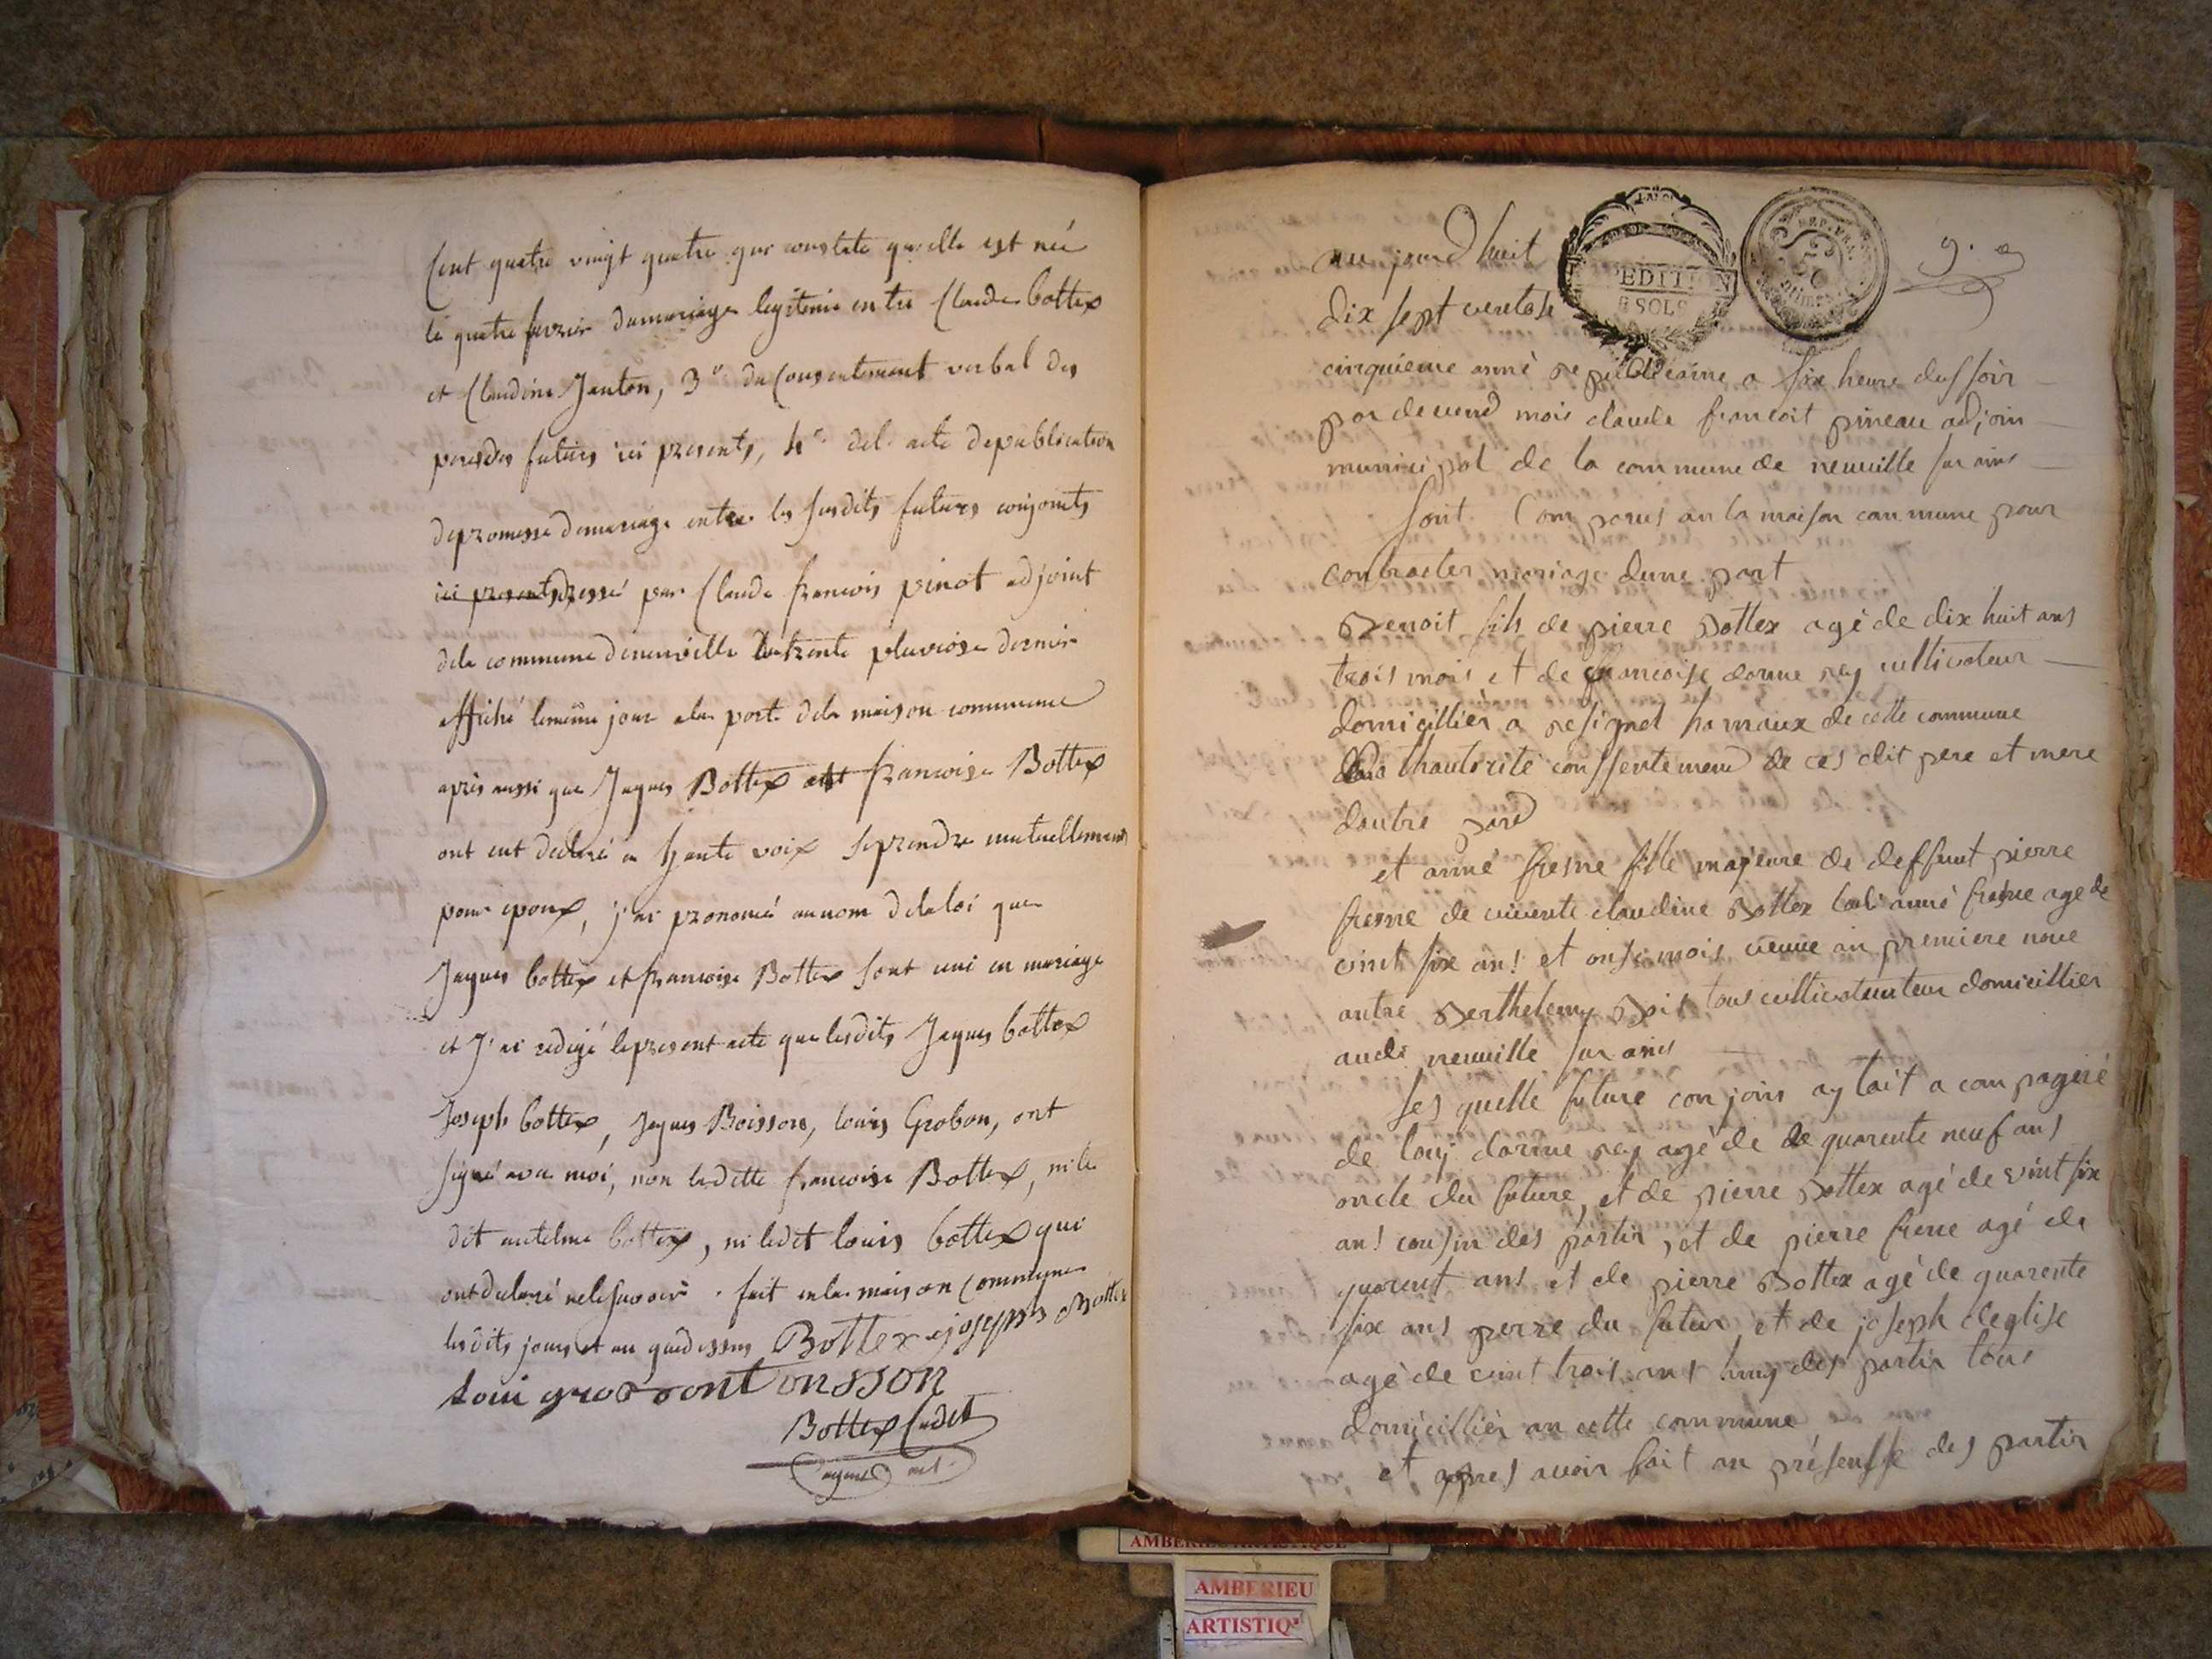 Cent quatre vingt quatre que constate qu'elle est née
le quatre fevrier du mariage legitimé entre Claude bottex
et Claudine Janton, 3° du Consentement verbal des
peres des futurs ici presents, 4° del acte de publication
de promesse de mariage entre les susdits futurs conjoints
ici presents dressé par Claude francois pinot adjoint
dela commune deneuville le trente pluviose dernier
affiché lememe jour a la porte dela maison commune
après aussi que Jaques Bottex et francoise Bottex
ont eut declaré a haute voix seprendre mutuellement
pour epoux, j'ai prononcé aunom delaloi que
Jaques bottex et francoise Bottex sont uni en mariage
et J'ai redigé lepresent acte que lesdits Jaques bottex
Joseph bottex, Jaques Boisson, louis Grobon, ont
signé avec moi, non ladette francoise Bottex, ni le
dit antelme bottex, ni ledit louis bottex qui
ont declaré nelesavoir . fait en la maison commune
lesdits jours et an quedessus Bottex joseph Bottex
Loui
Bottex Cadet
aujourd huit
dix sept ventose
EDITION
6 SOLS
REP. FRA.
9.
cinquieme anné republicaine a six heure dussoir
par devend mois claude francoit pineau adjoin
municipal de la commune de neuville sur ains
sont Comparus an la maison commune pour
contracter mariage dune part
Benoit fils de pierre Bottex agé de dix huit ans
trois mois et de francoise dorme rey cultivateur
domicillier a resignel hamaux de cette commune
sous lhautorité conssentemend de ces dit pere et mere
dautre pard
et anné fresne fille majeure de deffunt pierre
fresne de vivente claudine Bottex ladi anné fresne age de
vint six ans et onse mois veuve an premiere noue
autre Berthelemy tous cultivateur domicillier
audi neuville sur ains
Les quelle future conjoin aytait a compagné
de louy dorme rey agé de de quarente neuf ans
oncle du future, et de pierre Bottex agé de vint six
ans cousin des partir, et de pierre frene agé de
quarent ans et de pierre Bottex agé de quarente
six ans perre du futur, et de joseph deglise
agé de vint trois ans des partir tous
domicillier an cette commune
et apres avoir fait an présensse des partir
AMBERIEU ARTISTIQUE
AMBERIEU
ARTISTIQ